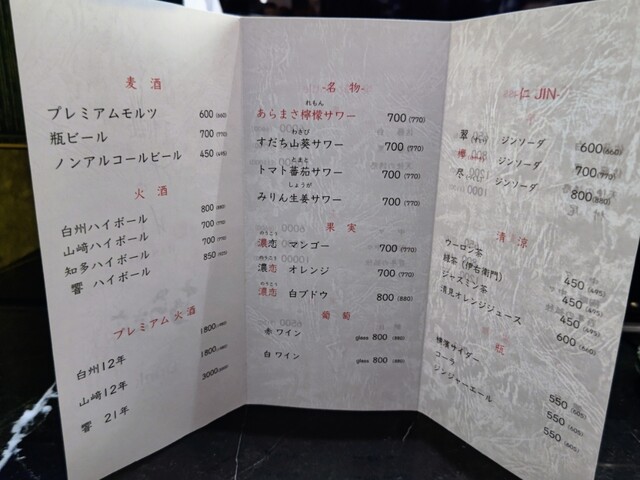 麦 酒
プレミアムモルツ 600 (660)
瓶ビール 700 (770)
ノンアルコールビール 450 (495)
火 酒
白州ハイボール 800 (880)
山崎ハイボール 700 (770)
知多ハイボール 700 (770)
響 ハイボール 850 (935)
プレミアム火酒
白州12年 1800
山崎12年 1800
響 21年 3000
-名 物-
れもん
あらまさ檸檬サワー 700 (770)
わさび
すだち山葵サワー 700 (770)
とまと
トマト蕃茄サワー 700 (770)
しょうが
みりん生姜サワー 700 (770)
果 実
濃恋 マンゴー 700 (770)
濃恋 オレンジ 700 (770)
濃恋 白ブドウ 800 (880)
葡 萄
赤ワイン glass 800 (880)
白ワイン glass 800 (880)
-仁 JIN-
翠 ジンソーダ 600 (660)
欅 ジンソーダ 700 (770)
ジンソーダ 800 (880)
清 涼
ウーロン茶 450 (495)
緑茶(伊右衛門) 450 (495)
ジャスミン茶 450 (495)
清見オレンジジュース 600 (660)
瓶
横濱サイダー 550 (605)
コーラ 550 (605)
ジンジャーエール 550 (605)